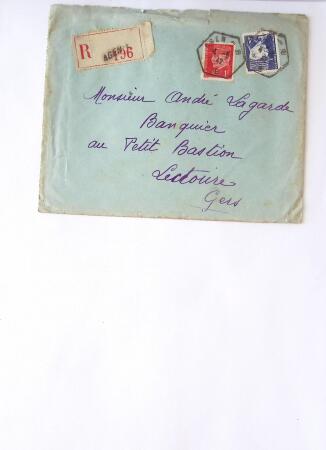 R
AGEN
196
Monsieur André Lagarde
Banquier
au Petit Bastion
Lectoure
Gers